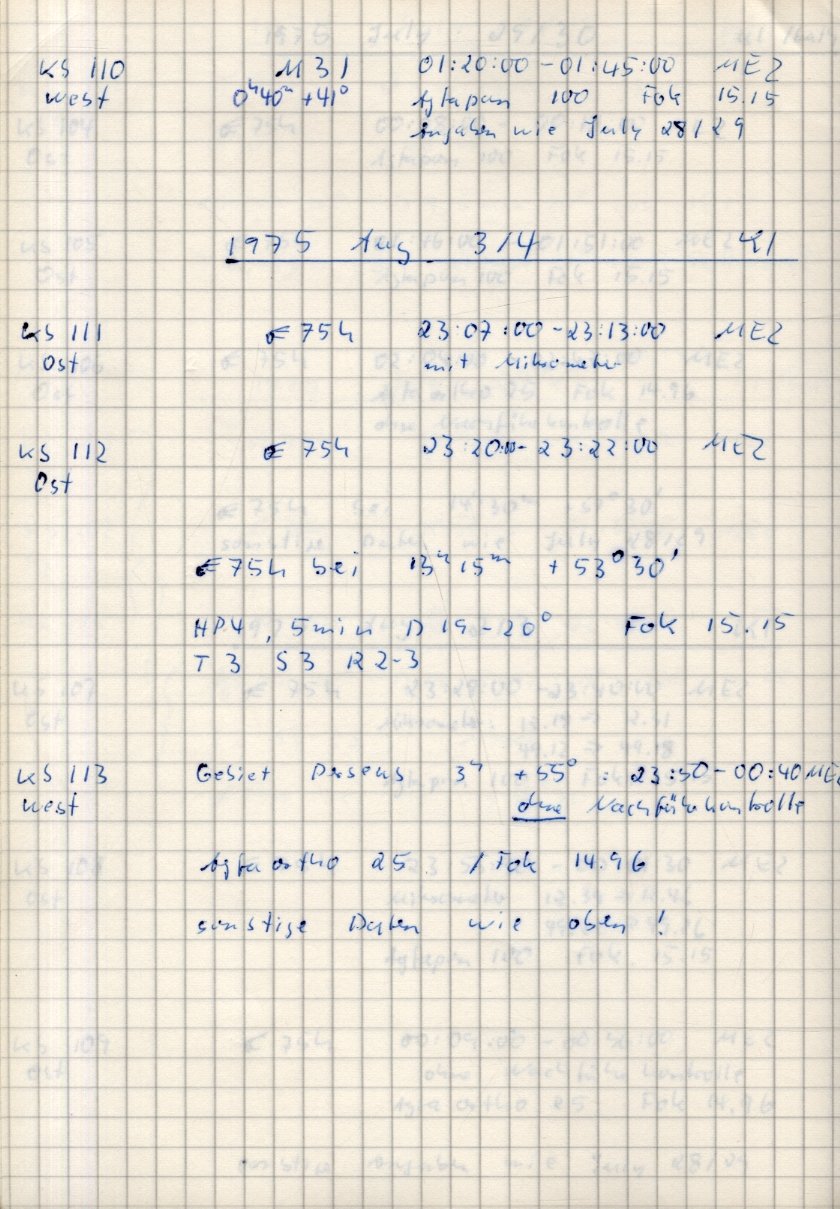 KS 110 M 31 01:20:00 - 01:45:00 MEZ
West 0ʰ40ᵐ +41° Agfapan 100 Fok 15.15
Angaben wie July 28/29
1975 Aug 3/4 KI
KS 111 € 75h 23:07:00 - 23:13:00 MEZ
Ost mit Mikrometer
KS 112 € 75h 23:20:00 - 23:22:00 MEZ
Ost
€ 75h bei 13ʰ 15ᵐ + 53° 30'
HP4, 5min D 19 - 20° Fok 15.15
T 3 S 3 R 2-3
KS 113 Gebiet Perseus 3ʰ +55° : 23:50 - 00:40 MEZ
West ohne Nachführkontrolle
Agfa ortho 25 / Fok 14.96
sonstige Daten wie oben !